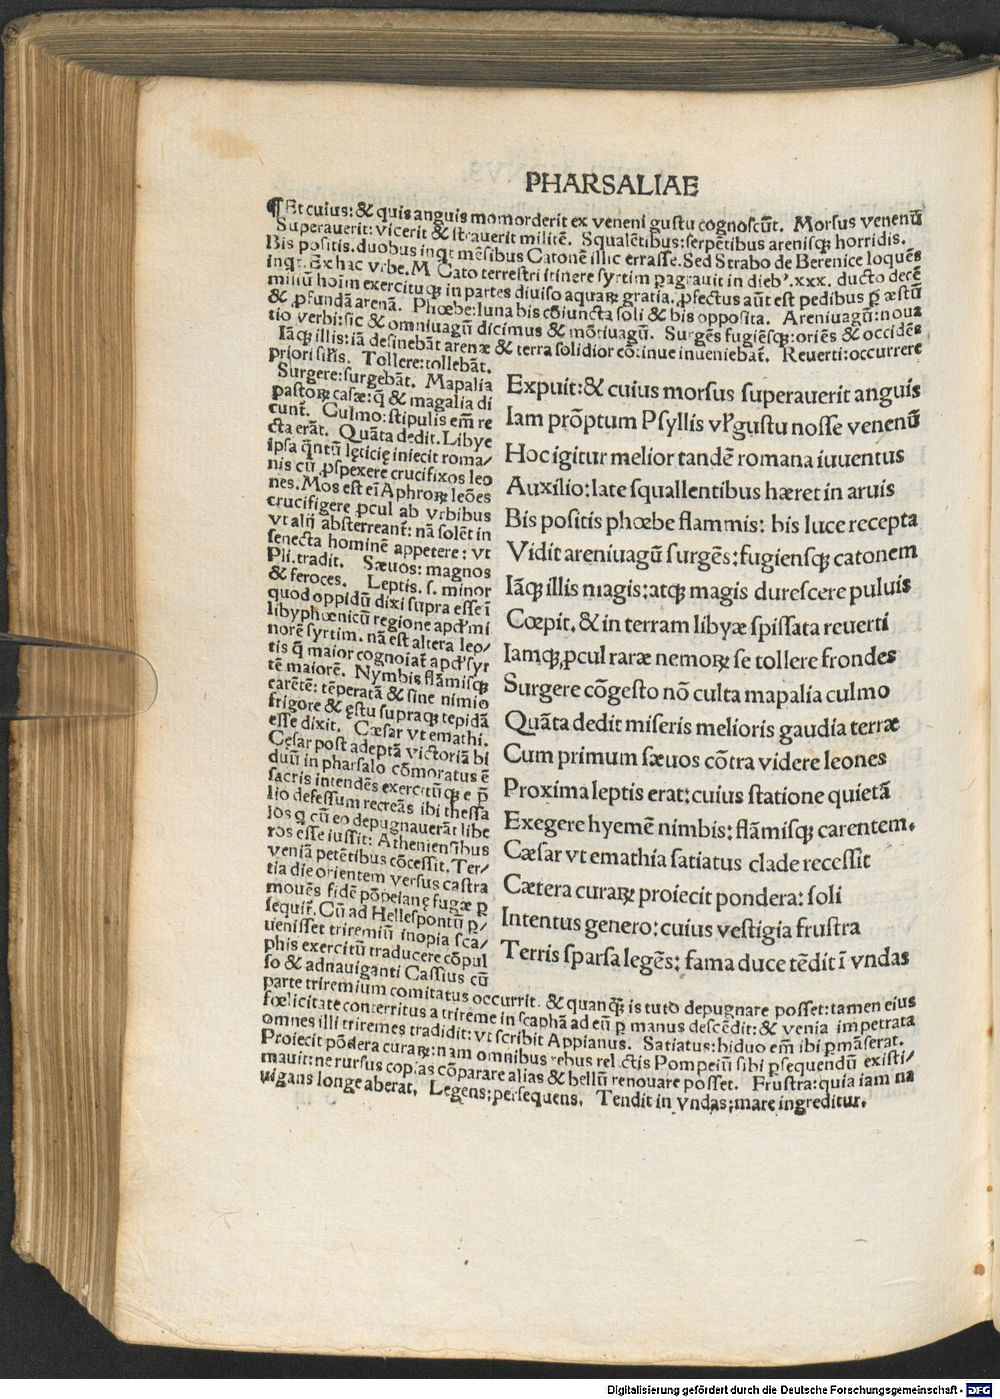 PHARSALIAE
¶Et cuius: & quis anguis momorderit ex veneni gustu cognoscũt. Morsus venenũ
Superauerit: vicerit & strauerit militẽ. Squalẽtibus: serpẽtibus arenisqꝫ horridis.
Bis positis. duobus inqt mẽsibus Catonẽ illic errasse. Sed Strabo de Berenice loquẽs
inqt. Ex hac vrbe. M Cato terrestri itinere syrtim ꝑagrauit in dieb⁹. xxx. ducto decẽ
miliũ hoim exercitu qꝫ in partes diuiso aquaꝝ gratia. ꝓfectus aũt est pedibus ꝑ æstũ
& ꝓfundã arenã. Phœbe: luna bis cõiuncta soli & bis opposita. Areniuagũ: noua
tio verbi: sic & omniuagũ dicimus & mõtiuagũ. Surgẽs fugiẽsqꝫ: oriẽs & occidẽs
Iãqꝫ illis: iã desinebãt arenæ & terra solidior cõtinue inueniebat̃. Reuerti: occurrere
priori sil̃is. Tollere: tollebãt.
Surgere: surgebãt. Mapalia
pastoꝝ casæ: q̃ & magalia di
cunt̃. Culmo: stipulis em̃ re
cta erãt. Quãta dedit. Libye
ipsa q̃ntũ lęticię iniecit roma/
nis cũ ꝓspexere crucifixos leo
nes. Mos est eĩ Aphroꝝ leões
crucifigere ꝓcul ab vrbibus
vt alij absterreant̃: nã solẽt in
senecta hominẽ appetere: vt
Pli. tradit. Sæuos: magnos
& feroces. Leptis. s. minor
quod oppidũ dixi supra esse ĩ
libyphœnicũ regione apd' mi
norẽ syrtim. nã est altera lep/
tis q̃ maior cognoiat̃ apd' syr
tẽ maiorẽ. Nymbis flãmisqꝫ
carẽtẽ: tẽperatã & sine nimio
frigore & ęstu supraqꝫ tepidã
esse dixit. Cæsar vt emathi.
Cęsar post adeptã victoriã bi
duũ in pharsalo cõmoratus ẽ
sacris intendẽs exercitũqꝫ e p̃
lio defessum recreãs ibi thessa
los q cũ eo depugnauerãt libe
ros esse iussit: Atheniensibus
veniã petẽtibus cõcessit. Ter/
tia die orientem versus castra
mouẽs fidẽ põpeianę fugæ ꝑ
sequit̃. Cũ ad Hellespontũ ꝑ/
uenisset triremiũ inopia sca/
phis exercitũ traducere cõpul
so & adnauiganti Cassius cũ
parte triremium comitatus occurrit. & quanqꝫ̃ is tuto depugnare posset: tamen eius
fœlicitate conterritus a trireme in scaphã ad eũ ꝑ manus descẽdit: & venia impetrata
omnes illi triremes tradidit: vt scribit Appianus. Satiatus: biduo em̃ ibi ꝑmãserat.
Proiecit põdera curaꝝ: nam omnibus rebus relictis Pompeiũ sibi ꝑsequendũ existi/
mauit: ne rursus copias cõparare alias & bellũ renouare posset. Frustra: quia iam na
uigans longe aberat. Legens: persequens. Tendit in vndas: mare ingreditur.
Expuit: & cuius morsus superauerit anguis
Iam prõptum Psyllis vl̕ gustu nosse venenũ
Hoc igitur melior tandẽ romana iuuentus
Auxilio: late squallentibus hæret in aruis
Bis positis phœbe flammis: bis luce recepta
Vidit areniuagũ surgẽs: fugiensqꝫ catonem
Iãqꝫ illis magis: atqꝫ magis durescere puluis
Cœpit. & in terram libyæ spissata reuerti
Iamqꝫ ꝓcul raræ nemoꝝ se tollere frondes
Surgere cõgesto nõ culta mapalia culmo
Quãta dedit miseris melioris gaudia terræ
Cum primum sæuos cõtra videre leones
Proxima leptis erat: cuius statione quietã
Exegere hyemẽ nimbis: flãmisqꝫ carentem.
Cæsar vt emathia satiatus clade recessit
Cætera curaꝝ proiecit pondera: soli
Intentus genero: cuius vestigia frustra
Terris sparsa legẽs: fama duce tẽdit ĩ vndas
Digitalisierung gefördert durch die Deutsche Forschungsgemeinschaft - DFG